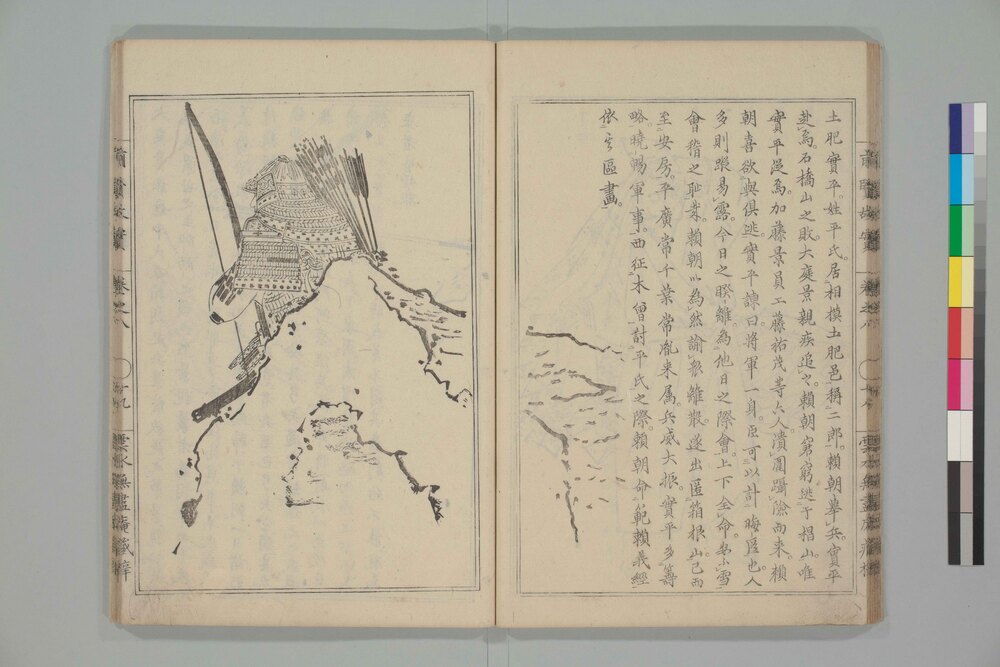 土肥實平。姓平氏。居相摸土肥邑稱二郎。賴朝擧兵。實平
赴焉。石橋山之敗。大庭景親疾追之。賴朝窘窮逃于椙山。唯
實平從焉。加藤景員工藤祐茂等六人潰圍躡險而來。賴
朝喜欲與俱逃。實平諫曰將軍一身。臣可以計晦匿也。人
多則蹤易露。今日之睽離為他日之際會。上下全命。
會稽之耻業。賴朝以為然。諭衆離散。遂出匿箱根山。已而
至安房。平廣常千葉常胤來属。兵威大振。實平多籌
略。曉暢軍事。西征木曾討平氏之際。賴朝命範賴義經
依之區畫。
前賢故實
卷之八
雲水無盡庵藏梓